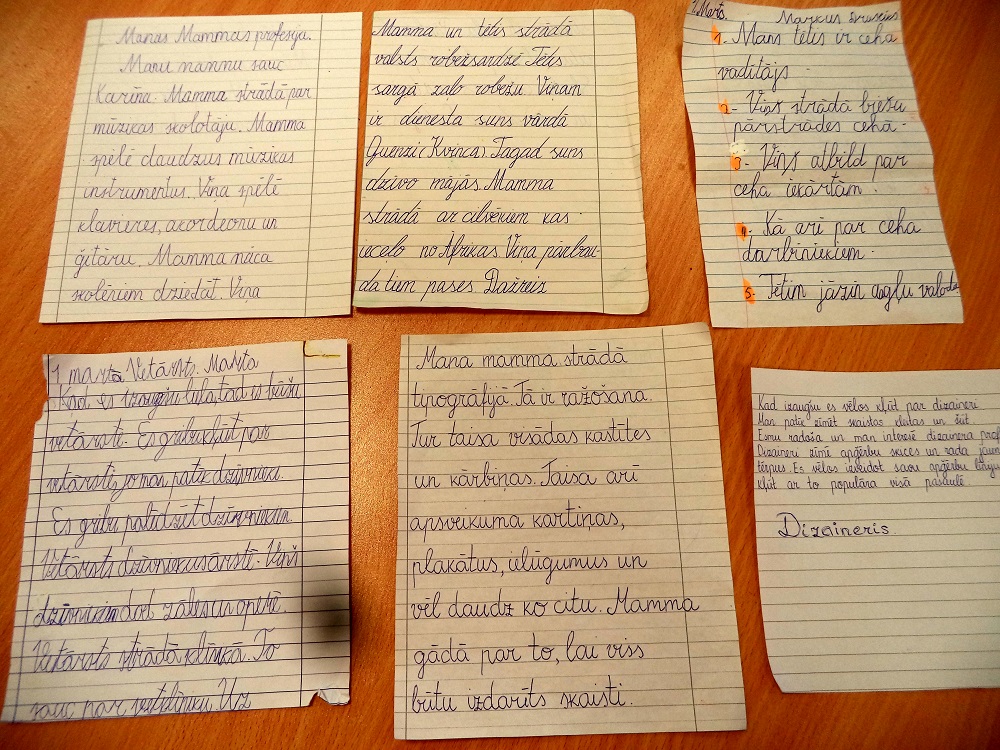 Manas Mammas profesija.
Manu mammu sauc
Karīna. Mamma strādā par
mūzikas skolotāju. Mamma
spēlē daudzus mūzikas
instrumentus. Viņa spēlē
klavieres, akordeonu un
ģitāru. Mamma māca
skolēniem dziedāt. Viņa
Mamma un tētis strādā
valsts robežsardzē. Tētis
sargā zaļo robežu. Viņam
ir dienesta suns vārdā
Guenzi (Kvinca). Tagad suns
dzīvo mājās. Mamma
strādā ar cilvēkiem kas
ieceļo no Āfrikas. Viņa pārbau-
da tiem pases. Dažreiz
1. Marts. Markus
1. Mans tētis ir ceha
vadītājs
2. Viņš strādā biešu
pārstrādes cehā.
3. Viņš atbild par
ceha iekārtām.
4. Kā arī par ceha
darbiniekiem.
5. Tētim jāzin angļu valoda
1 marta Vetārsts. Marta
Kad es izaugšu liela, tad es būšu
vetārste. Es gribu kļūt par
vetārsti, jo man patīk dzīvnieki.
Es gribu palīdzēt dzīvniekiem.
Vetārsts dzīvniekus ārstē. Viņš
dzīvniekiem dod zāles un operē.
Vetārsts strādā klīnikā. To
sauc par vetklīniku. Uz
Mana mamma strādā
tipogrāfijā. Tā ir ražošana.
Tur taisa visādas kastītes
un kārbiņas. Taisa arī
apsveikuma kartiņas,
plakātus, ielūgumus un
vēl daudz ko citu. Mamma
gādā par to, lai viss
būtu izdarīts skaisti.
Kad izaugšu es vēlos kļūt par dizaineri
Man patīk zīmēt skaistas kleitas un šūt
Esmu radoša un man interesē dizainera prof
Dizaineri zīmē apģērbu skices un rada jaun
tērpus. Es vēlos izveidot savu apģērbu
kļūt ar to populāra visā pasaulē
Dizaineris.